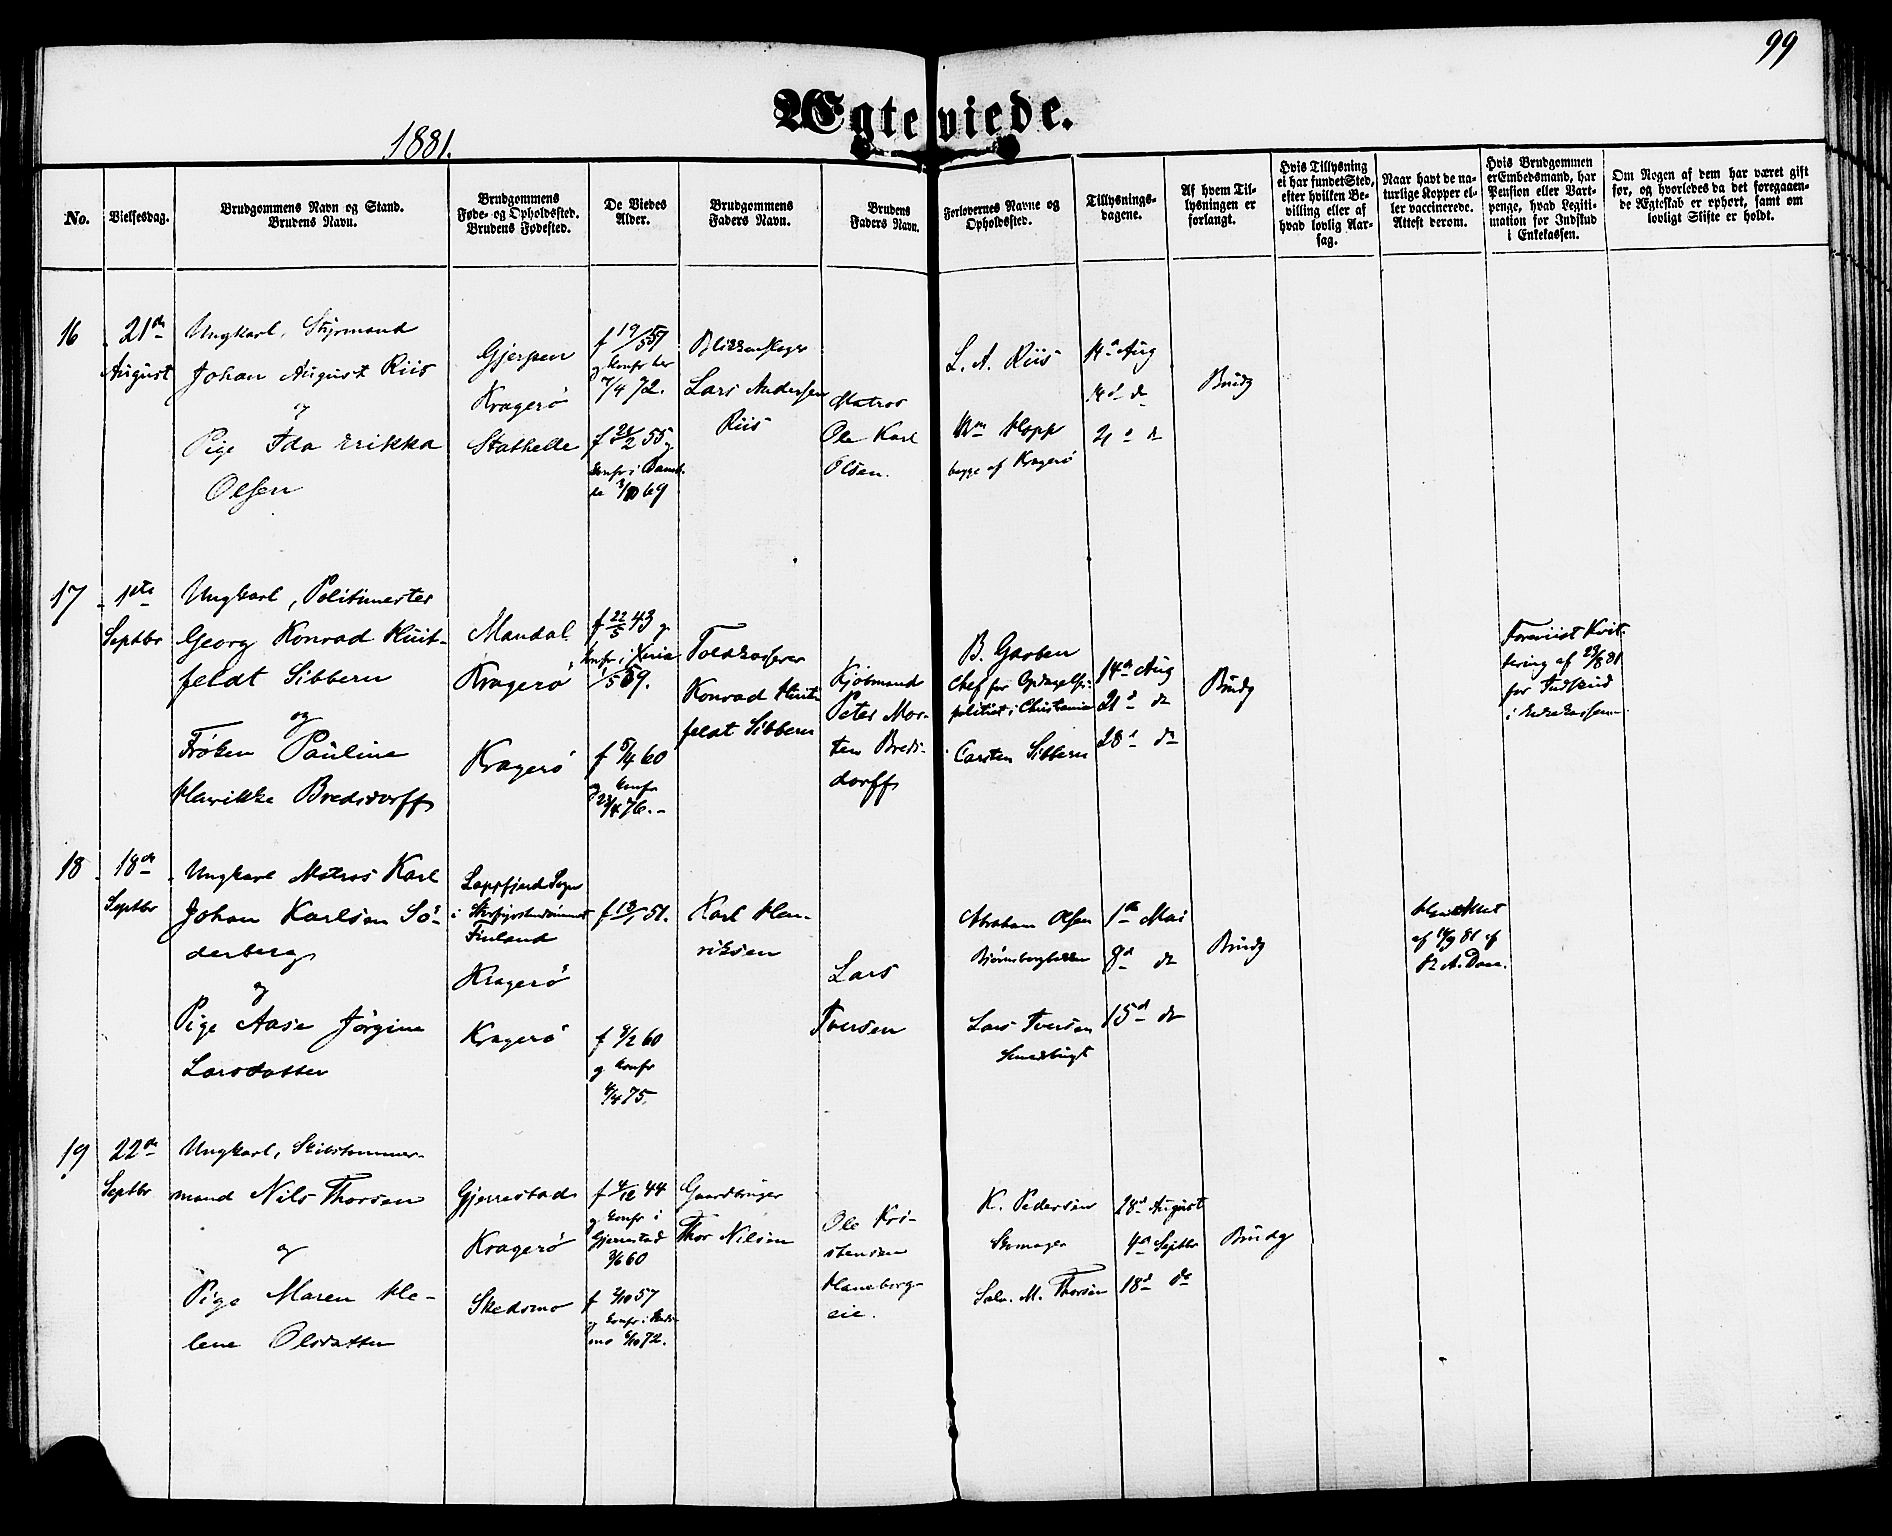 99
Ægteviede.
1881.
No.
Vielsesdag.
Brudgommens Navn og Stand.
Brudens Navn.
Brudgommens
Føde- og Opholdssted.
Brudens Fødested.
De Viedes
Alder.
Brudgommens
Faders Navn.
Brudens
Faders Navn.
Forlovernes Navne og
Opholdssted.
Tillysnings-
dagene.
Af hvem Til-
lysningen er
forlangt.
Hvis Tillysning
ei har fundet Sted,
efter hvilken Be-
villing eller af
hvad lovlig Aar-
sag.
Naar havt de na-
turlige Kopper el-
ler vaccinerede.
Attest derom.
Hvis Brudgommen
er Embedsmand, har
Pension eller Vart-
penge, hvad Legiti-
mation for Indskud
i Enkekassen.
Om Nogen af dem har været gift
før, og hvorledes da det foregaaen-
de Ægteskab er ophørt, samt om
lovligt Skifte er holdt.
16
21de
August
Ungkarl, Styrmand
Johan August Riis
og
Pige Ida Erikka
Olsen
Gjerpen
Kragerø
Stathelle
f 19/5 57
og konfr her
7/4 72.
f 21/2 55 og
konfr i Bamb-
le 3/10 69
Blikkenslager
Lars Andersen
Riis
Matros
Ole Karl
Olsen.
L. A. Riis
Wm Hopp
begge af Kragerø
14d Aug
14d do
21d do
Brudg
17
1ste
Septbr
Ungkarl, Politimester
Georg Konrad Huit-
feldt Sibbern
og
Frøken Pauline
Henrikke Bredsdorff
Mandal
Kragerø
Kragerø
f 22/5 43 og
konfr i Xania
1/5 59.
f 5/4 60
og konfr
23/4 76.
Toldkasserer
Konrad Huit-
feldt Sibbern
Kjøbmand
Peter Mor-
ten Breds-
dorff
B. Garben
Chef for Opdagelses-
politiet i Christiania
Carsten Sibbern
14d Aug
21d do
28d do
Brudg
Foreviist Kvit-
tering af 23/8 81
for Indskud
i Enkekassen
18
18de
Septbr
Ungkarl Matros Karl
Johan Karlsen Sö-
derberg
og
Pige Aase Jørgine
Larsdatter
Lappfjerd Sogn
Finland
Kragerø
Kragerø
f 13/1 51.
f 8/2 60
og konfr
4/4 75.
Karl Hen-
riksen
Lars
Iversen
Abraham Olsen
Bjørnsbergbakken
Lars Iversen
Smedsbugt
1ste Mai
8d do
15d do
Brudg
af 14/9 81 af
19
22de
Septbr
Ungkarl, Skibstømmer-
mand Nils Thorsen
og
Pige Maren He-
lene Olsdatter
Gjerrestad
Kragerø
Skedsmo
f 4/12 44
og konfr i
Gjerrestad
3/6 60
f 2/10 57
og konfr i Skeds-
mo 6/10 72.
Gaardbruger
Thor Nilsen
Ole Kri-
stensen
Haneborg-
eie.
K. Pedersen
Skomager
Salv. M. Thorsen
28d August
4d Septbr
18d do
Brudg